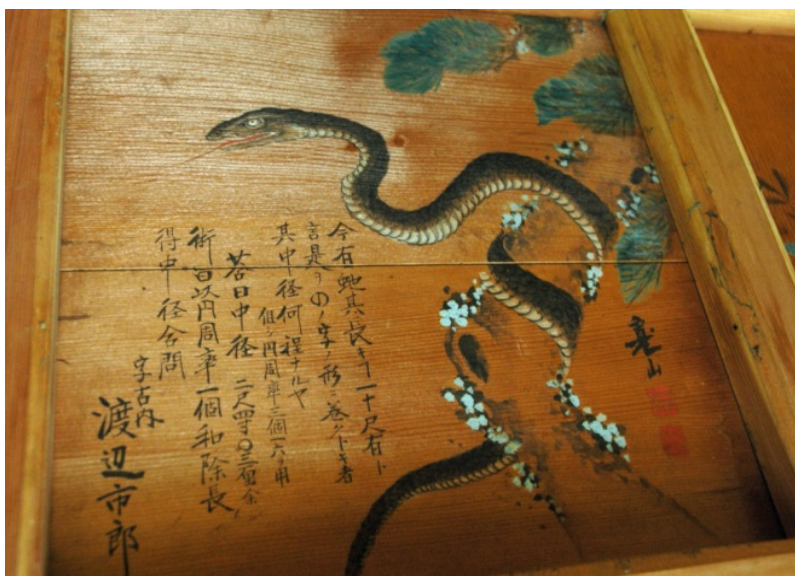 今有虵其長キヿ一十尺有ト
言是ヲのノ字ノ形ニ巻クトキ者
其中径何程ナルヤ
但シ円周率三個一六ヲ用
答曰中径 二尺四寸〇三厘余
術曰以円周率一個和除長
得中径合問
字古内
渡辺市郎